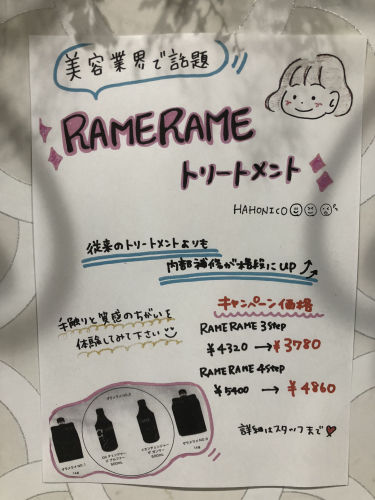 美容業界で話題
RAMERAME
トリートメント
HAHONICO
従来のトリートメントよりも
内部補修が格段にUP
手触りと質感のちがいを
体験してみて下さい
キャンペーン価格
RAMERAME 3step
¥4320→¥3780
RAMERAME 4step
¥5400→¥4860
詳細はスタッフまで